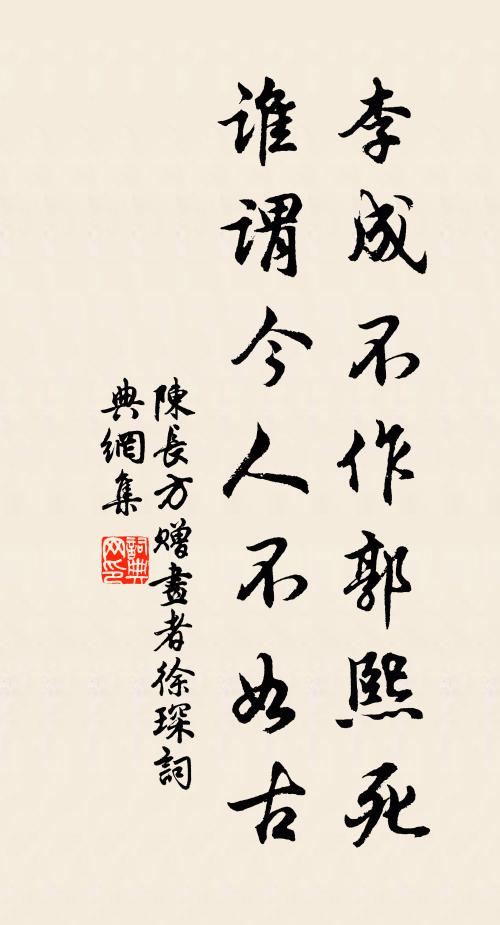 李成不作郭熙死
谁谓今人不如古
陳長方赠畫者徐琛詞
典網集
詞典网印